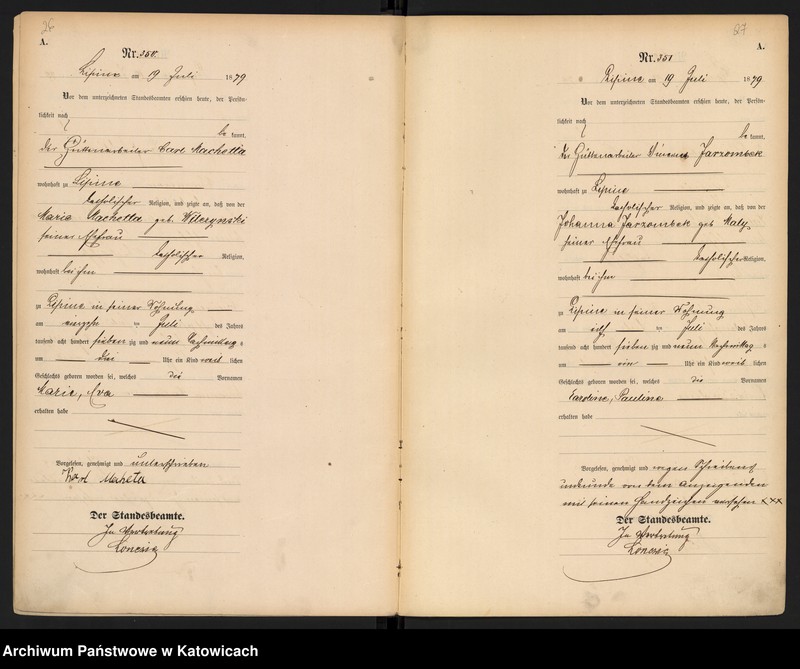 26
A.
Nr. 350.
Lipine am 19 Juli 1879
Vor dem unterzeichneten Standesbeamten erschien heute, der Persön-
lichkeit nach
be kannt,
der Hüttenarbeiter Carl Machetta
wohnhaft zu Lipine
katholischer Religion, und zeigte an, daß von der
Marie Machetta geb.
seiner Ehefrau
katholischer Religion,
wohnhaft bei ihm
zu Lipine in seiner Wohnung
am ten Juli des Jahres
tausend acht hundert sieben zig und neun Nachmittags
um drei Uhr ein Kind weib lichen
Geschlechts geboren worden sei, welches die Vornamen
Marie, Eva
erhalten habe
Vorgelesen, genehmigt und unterschrieben
Karl Macheta
Der Standesbeamte.
In Vertretung
27
A.
Nr. 351
Lipine am 19 Juli 1879
Vor dem unterzeichneten Standesbeamten erschien heute, der Persön-
lichkeit nach
be kannt,
der Hüttenarbeiter Vincent Jarzombek
wohnhaft zu Lipine
katholischer Religion, und zeigte an, daß von der
Johanna Jarzombek geb Maly
seiner Ehefrau
katholischer Religion,
wohnhaft bei ihm
zu Lipine in seiner Wohnung
am elf ten Juli des Jahres
tausend acht hundert sieben zig und neun Nachmittag s
um ein Uhr ein Kind weib lichen
Geschlechts geboren worden sei, welches die Vornamen
Karoline, Pauline
erhalten habe
Vorgelesen, genehmigt und wegen Schreibens
unkunde von dem Anzeigenden
mit seinen Handzeichen versehen XXX
Der Standesbeamte.
In Vertretung
Archiwum Państwowe w Katowicach